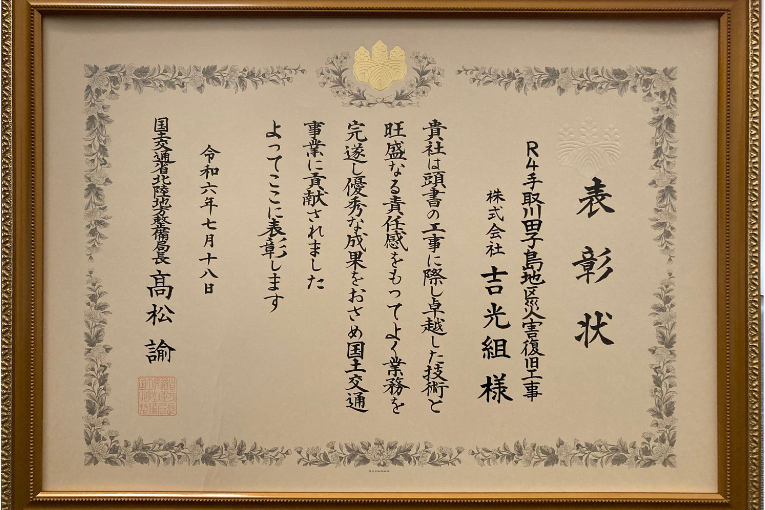 表彰状
R4手取川田子島地区災害復旧工事
株式会社 吉光組 様
貴社は頭書の工事に際し卓越した技術と
旺盛なる責任感をもってよく業務を
完遂し優秀な成果をおさめ国土交通
事業に貢献されました
よってここに表彰します
令和六年七月十八日
国土交通省北陸地方整備局長 髙松 諭